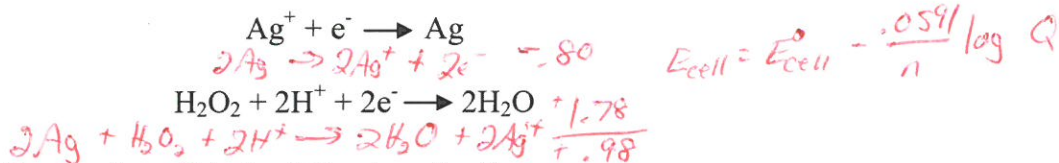 Ag⁺ + e⁻ → Ag
2Ag → 2Ag⁺ + 2e⁻ -.80
E_cell = E°_cell - .0591/n log Q
H₂O₂ + 2H⁺ + 2e⁻ → 2H₂O +1.78
2Ag + H₂O₂ + 2H⁺ → 2H₂O + 2Ag⁺ +.98